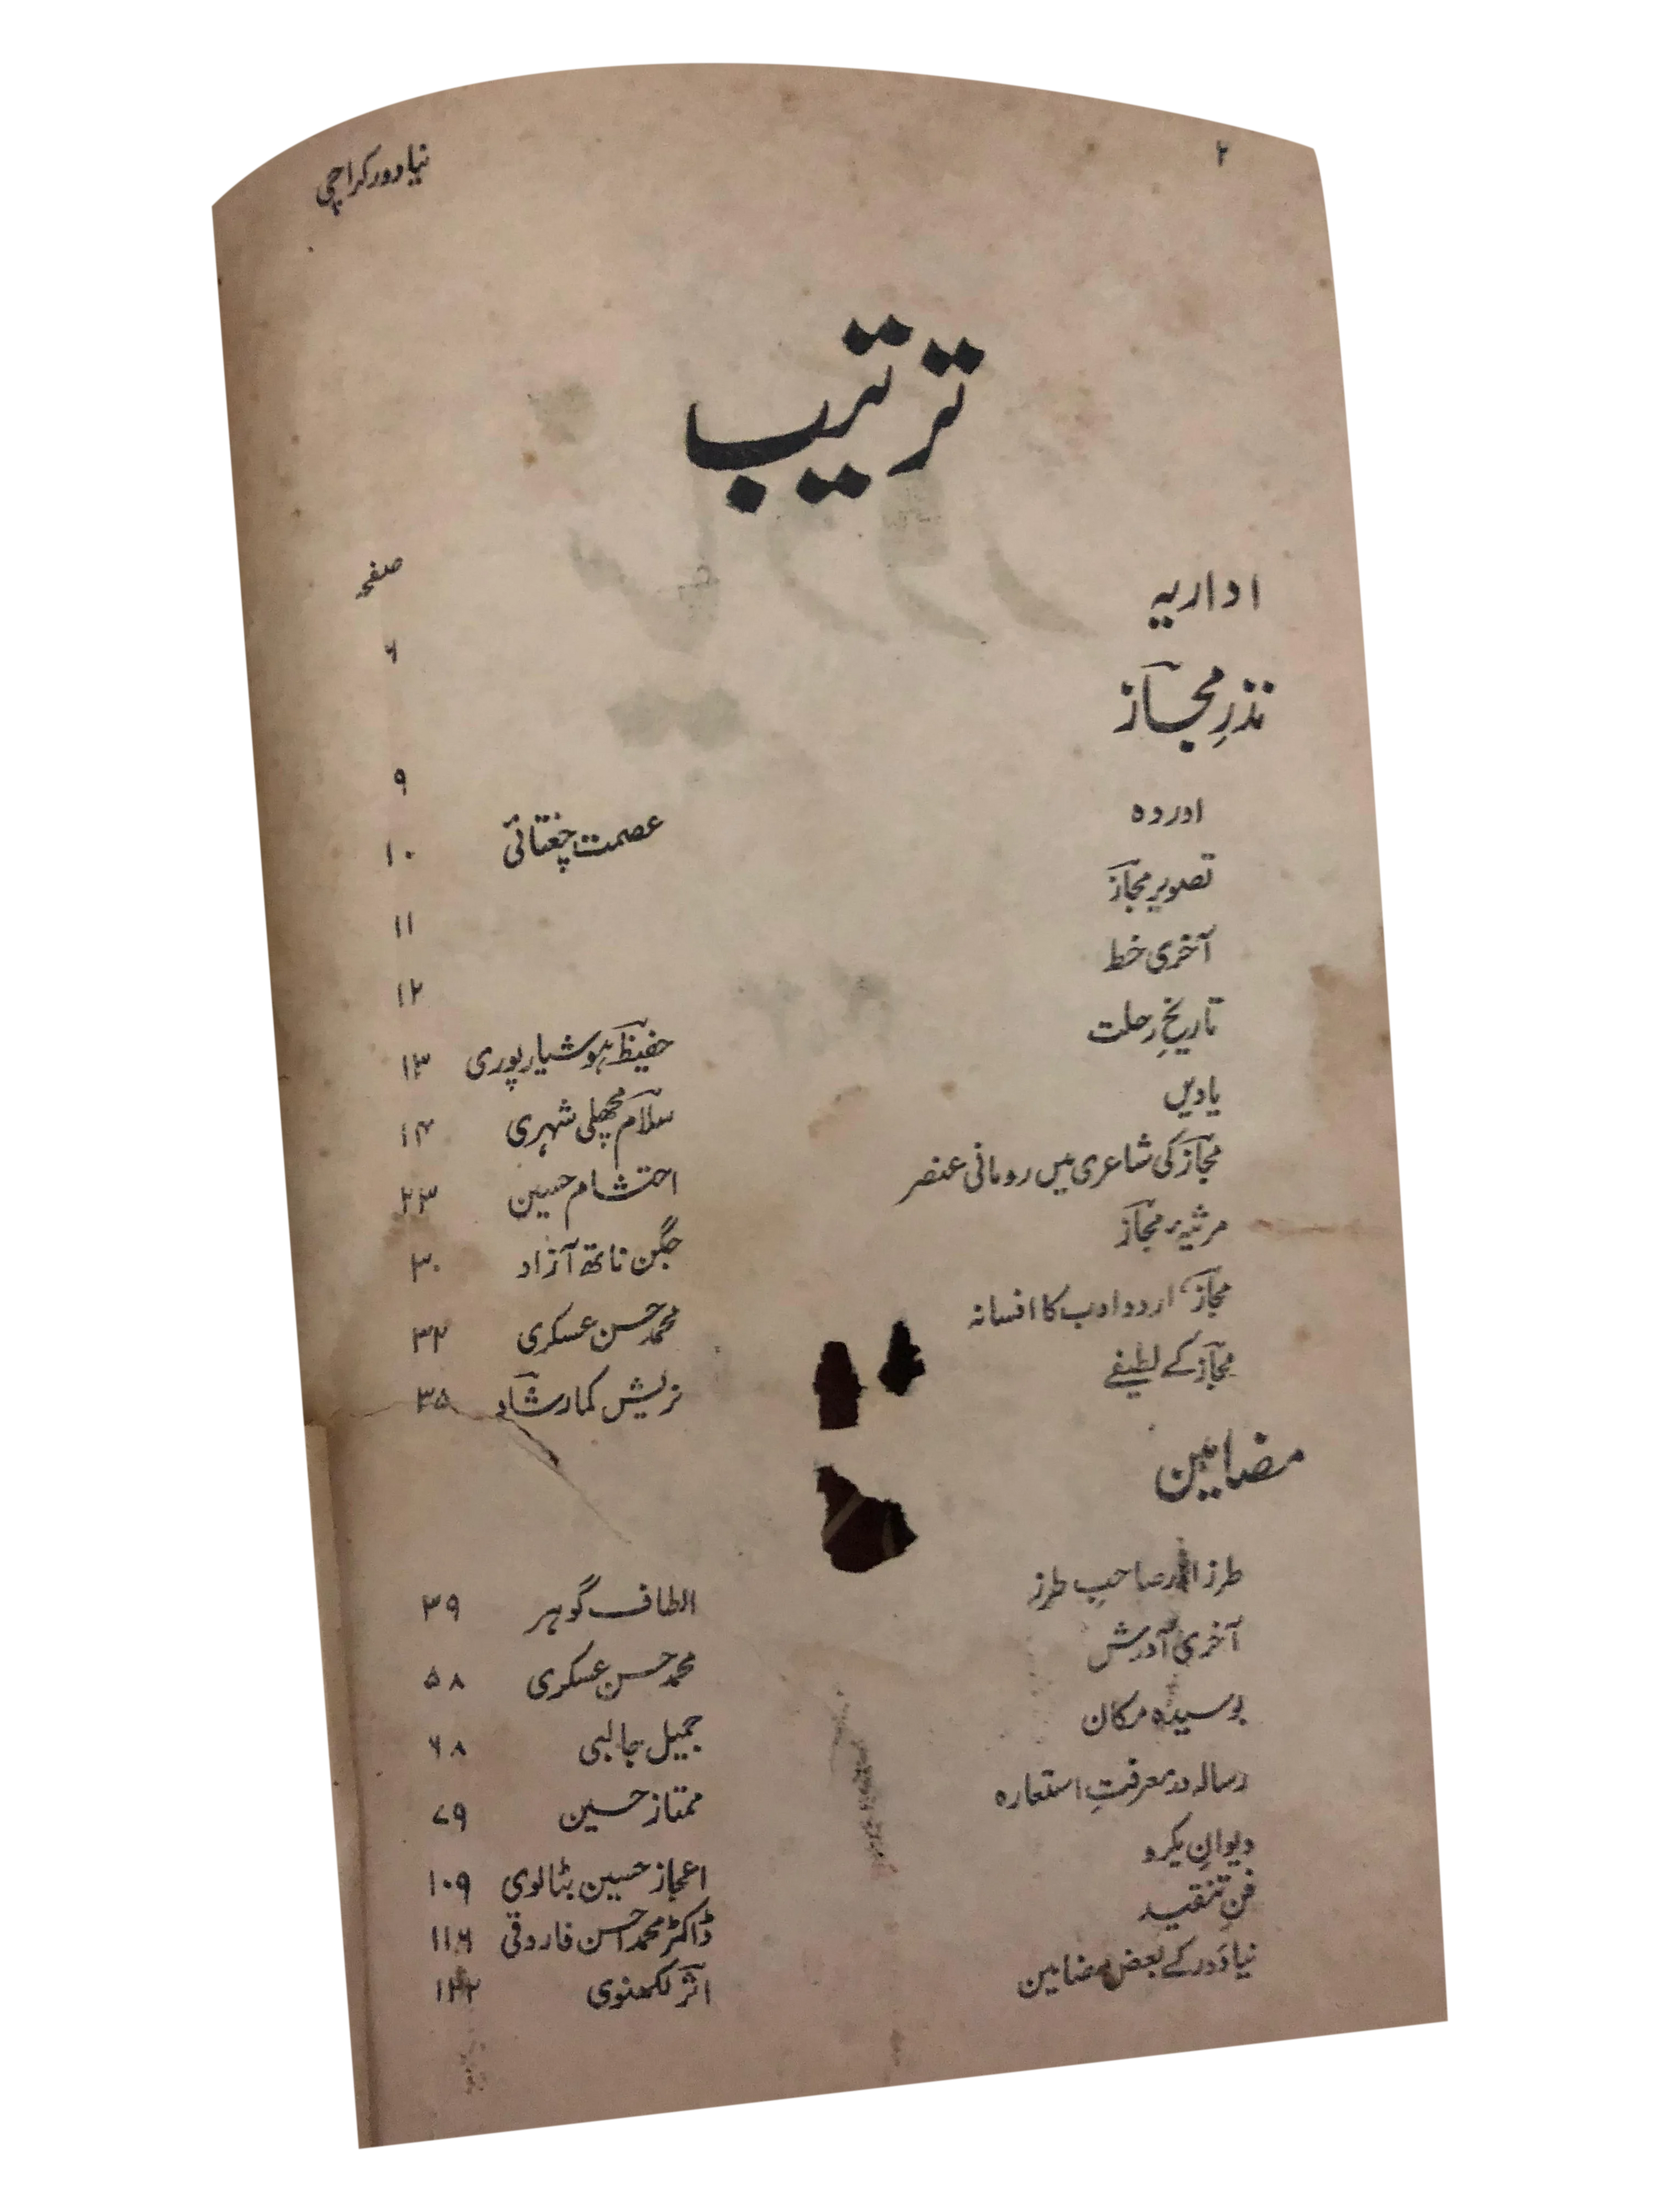 ۲ نیا دور کراچی
ترتیب
صفحہ
اداریہ ۶
نذرِ مجاز ۹
اور وہ عصمت چغتائی ۱۰
تصویرِ مجاز ۱۱
آخری خط ۱۲
تاریخِ رحلت حفیظ ہوشیارپوری ۱۳
یادیں سلام مچھلی شہری ۱۴
مجاز کی شاعری میں رومانی عنصر احتشام حسین ۲۳
مرثیۂ مجاز جگن ناتھ آزاد ۳۰
مجاز، اردو ادب کا افسانہ محمد حسن عسکری ۳۲
مجاز کے لطیفے نریش کمار شاد ۳۵
مضامین
طرز اور صاحبِ طرز الطاف گوہر ۳۹
آخری آدرش محمد حسن عسکری ۵۸
بوسیدہ مکان جمیل جالبی ۶۸
رسالہ در معرفتِ استعارہ ممتاز حسین ۷۹
دیوانِ یکرو اعجاز حسین بٹالوی ۱۰۹
فنِ تنقید ڈاکٹر محمد احسن فاروقی ۱۱۶
نیا دور کے بعض مضامین اثر لکھنوی